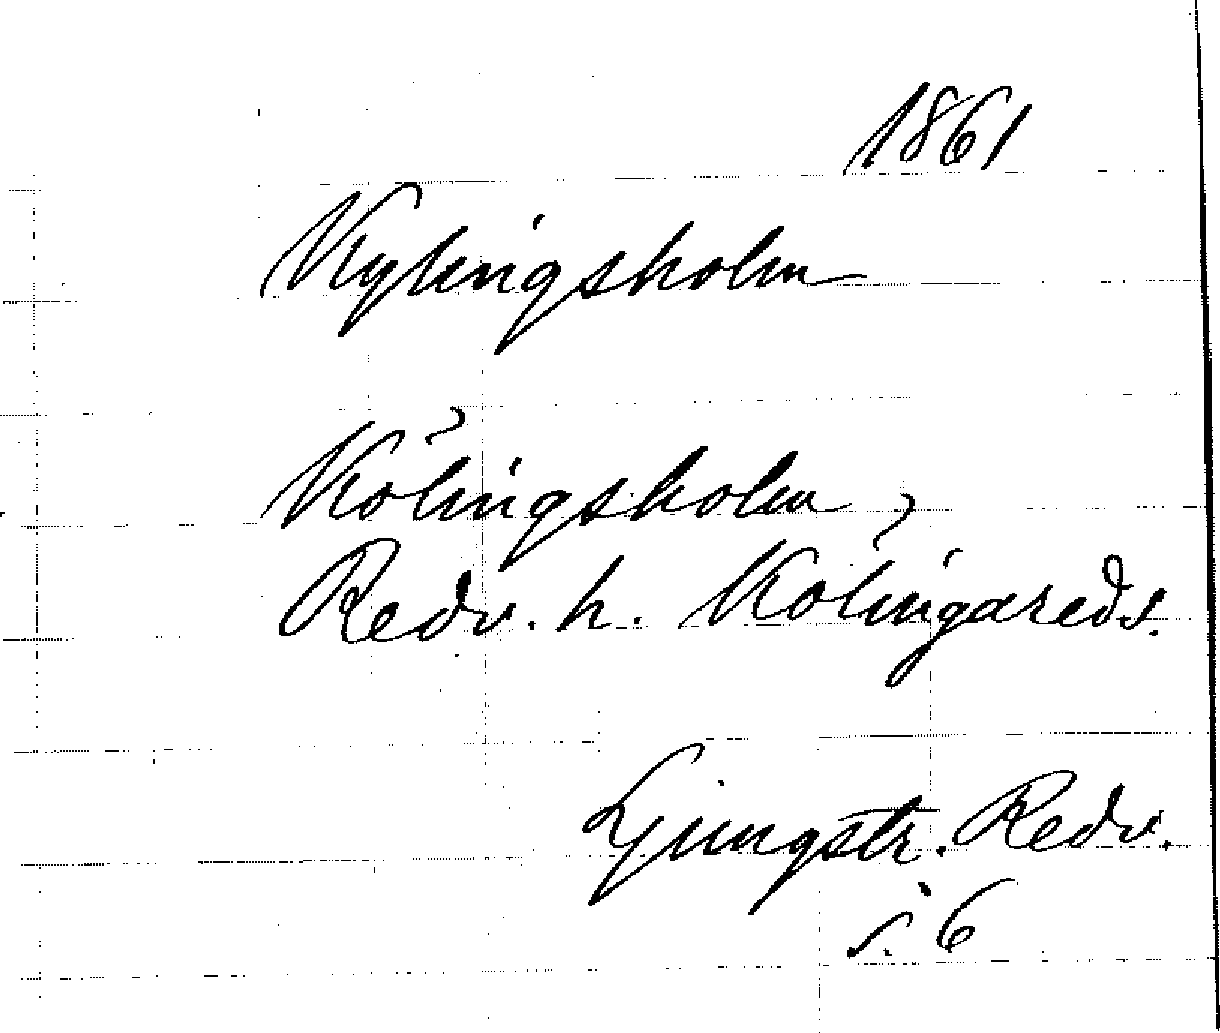 1861
Kylingsholm
Kölingsholm
Redv. h. Kölingareds.
Ljungstr. Redv.
s. 6